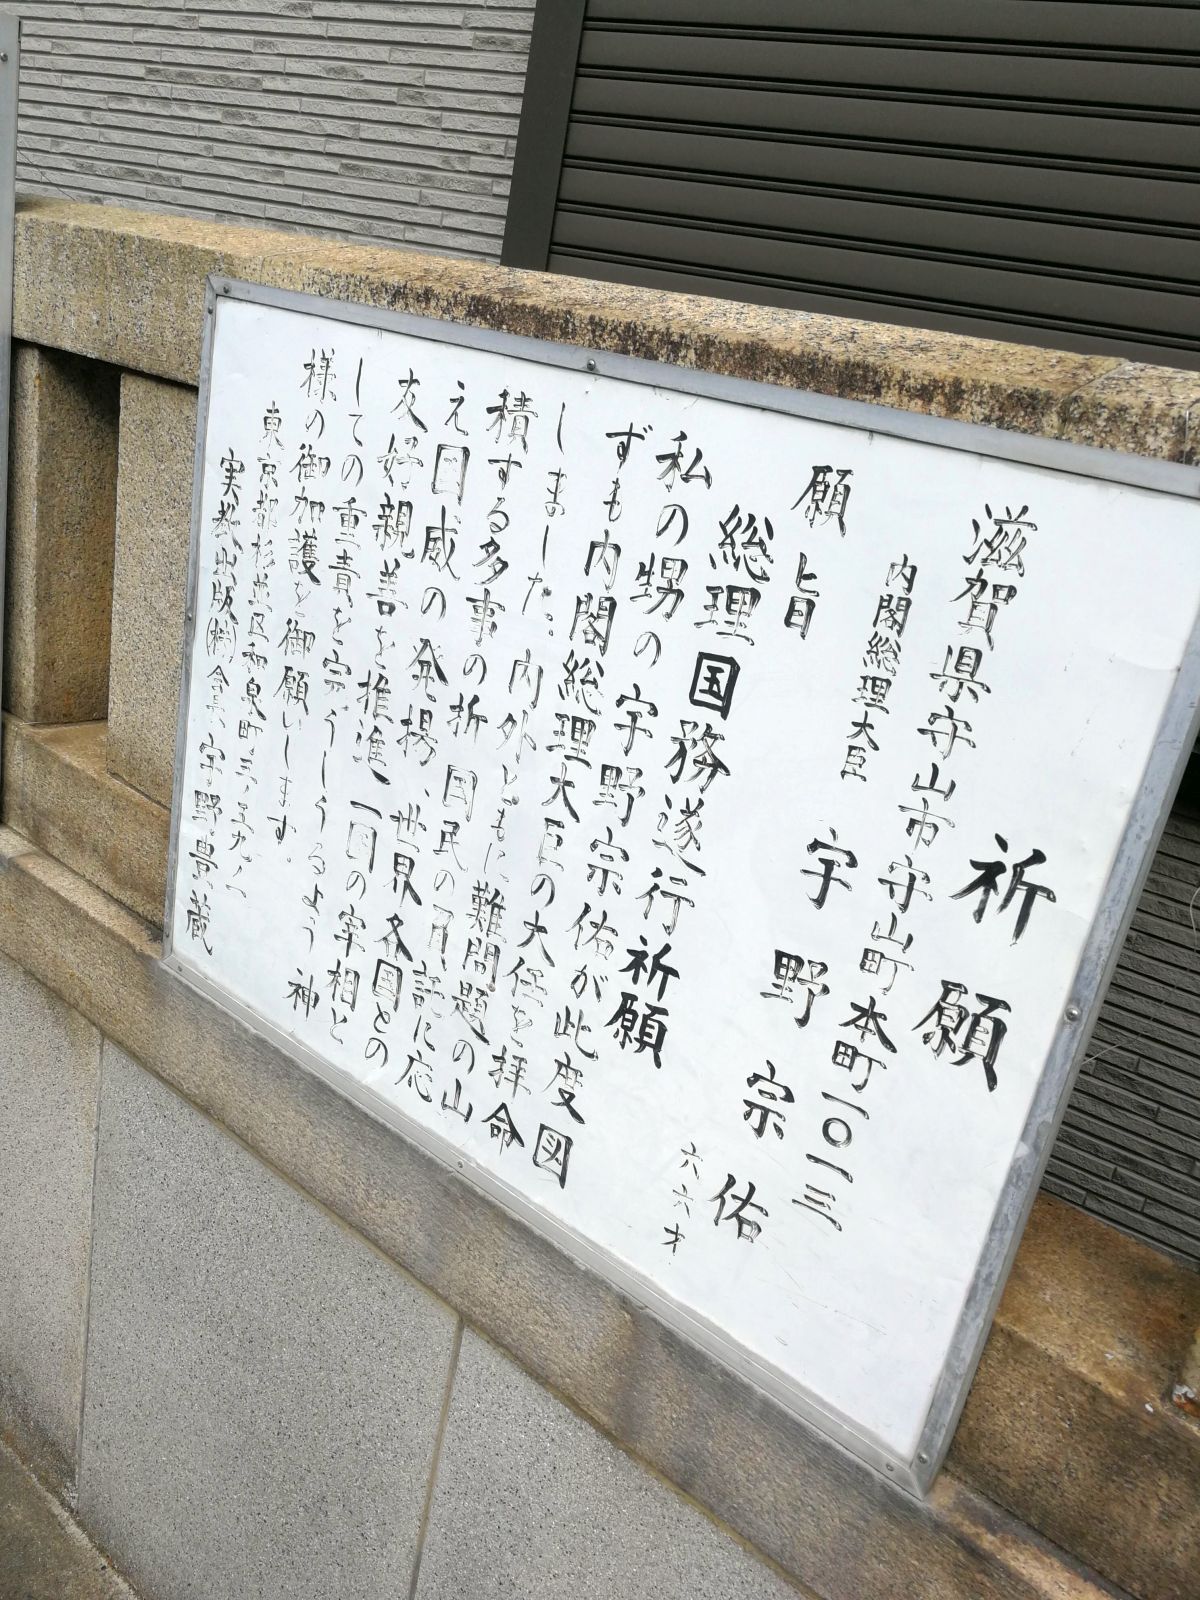 祈願
滋賀県守山市守山町本町一〇一三
内閣総理大臣 宇野宗佑
六六才
願旨
総理国務遂行祈願
私の甥の宇野宗佑が此度図
ずも内閣総理大臣の大任を拝命
しました。内外ともに難問題の山
積する多事の折 国民の負託に応
え国威の発揚、世界各国との
友好親善を推進 一国の宰相と
しての重責を完うしうるよう 神
様の御加護を御願いします。
東京都杉並区和泉町三ノ五九ノ
実教出版(株)会長 宇野豊蔵